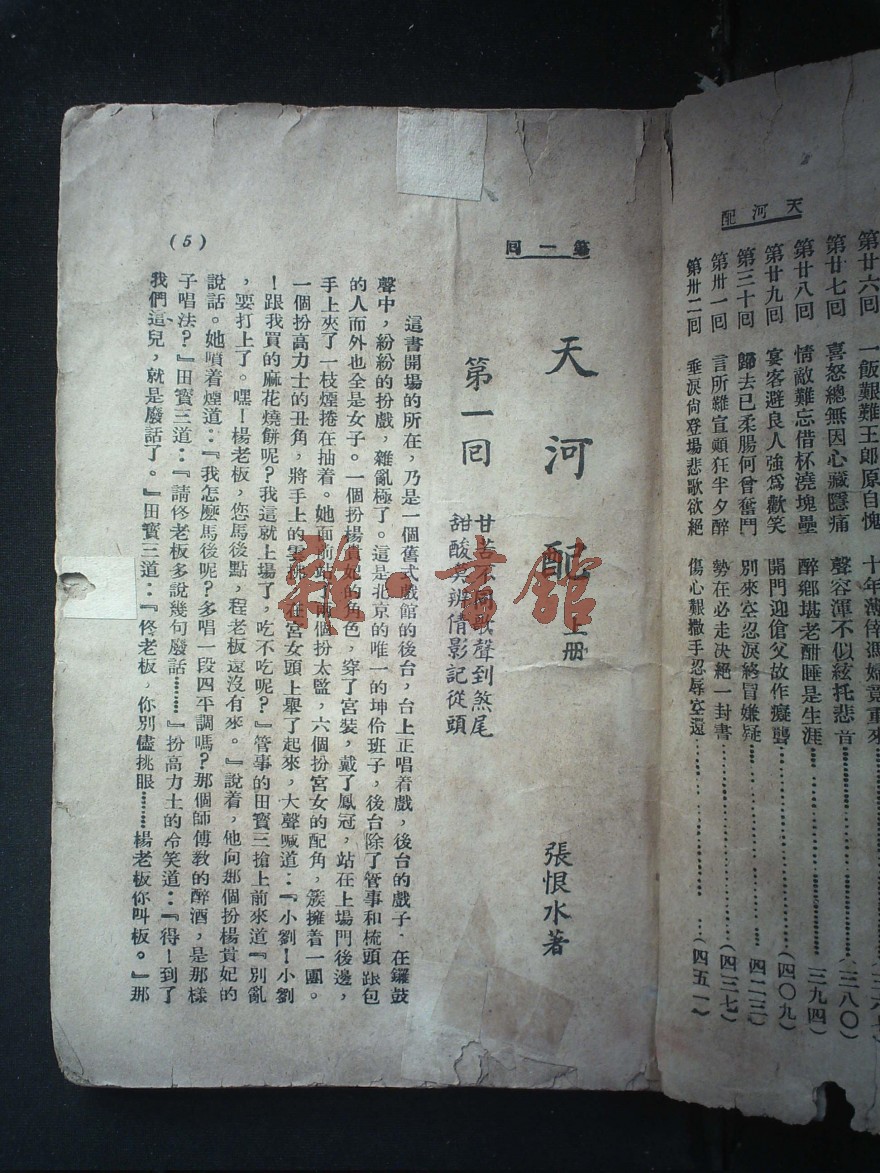 天河配
第廿六回 一飯艱難王郎原自愧
第廿七回 喜怒總無因心藏隱痛 聲容渾不似絃托悲音……(三八〇)
第廿八回 情敵難忘借杯澆塊壘 醉鄉堪老酣睡是生涯……三九四)
第廿九回 宴客避良人強爲歡笑 開門迎傖父故作癡聾……(四〇九)
第三十回 歸去已柔腸何曾奮鬥 別來空忍淚終冒嫌疑……(四二三)
第卅一回 言所難宣頓狂半夕醉 勢在必走決絕一封書……(四三七)
第卅二回 垂淚尙登場悲歌欲絕 傷心艱撒手忍辱空還……(四五一)
第一回
天河配 上册 張恨水著
第一回
甘苦不同歌聲到煞尾
甜酸莫辨倩影記從頭
這書開場的所在，乃是一個舊式戲館的後台，台上正唱着戲，後台的戲子．在鑼鼓
聲中，紛紛的扮戲，雜亂極了。這是北京的唯一的坤伶班子，後台除了管事和梳頭跟包
的人而外也全是女子。一個扮楊貴妃的角色，穿了宮裝，戴了鳳冠，站在上場門後邊，
手上夾了一枝煙捲在抽着。她面前站兩個扮太監，六個扮宮女的配角，簇擁着一團。
一個扮高力士的丑角，將手上的雲帚，在宮女頭上舉了起來，大聲喊道：『小劉！小劉
！跟我買的麻花燒餅呢？我這就上場了，吃不吃呢？』管事的田寶三搶上前來道『別亂
，要打上了。嘿！楊老板，您馬後點，程老板還沒有來。』說着，他向那個扮楊貴妃的
說話。她噴着煙道：『我怎麼馬後呢？多唱一段四平調嗎？那個師傅教的醉酒，是那樣
子唱法？』田寶三道：『請佟老板多說幾句廢話………』扮高力士的冷笑道：『得！到了
我們這兒，就是廢話了。』田寶三道：『佟老板，你別儘挑眼………楊老板你叫板。』那
(5)
雜·書館